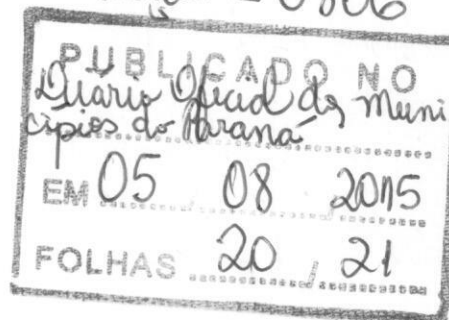 PUBLICADO NO
Diário Oficial dos Muni
cípios do Paraná
EM 05 08 2015
FOLHAS 20 / 21